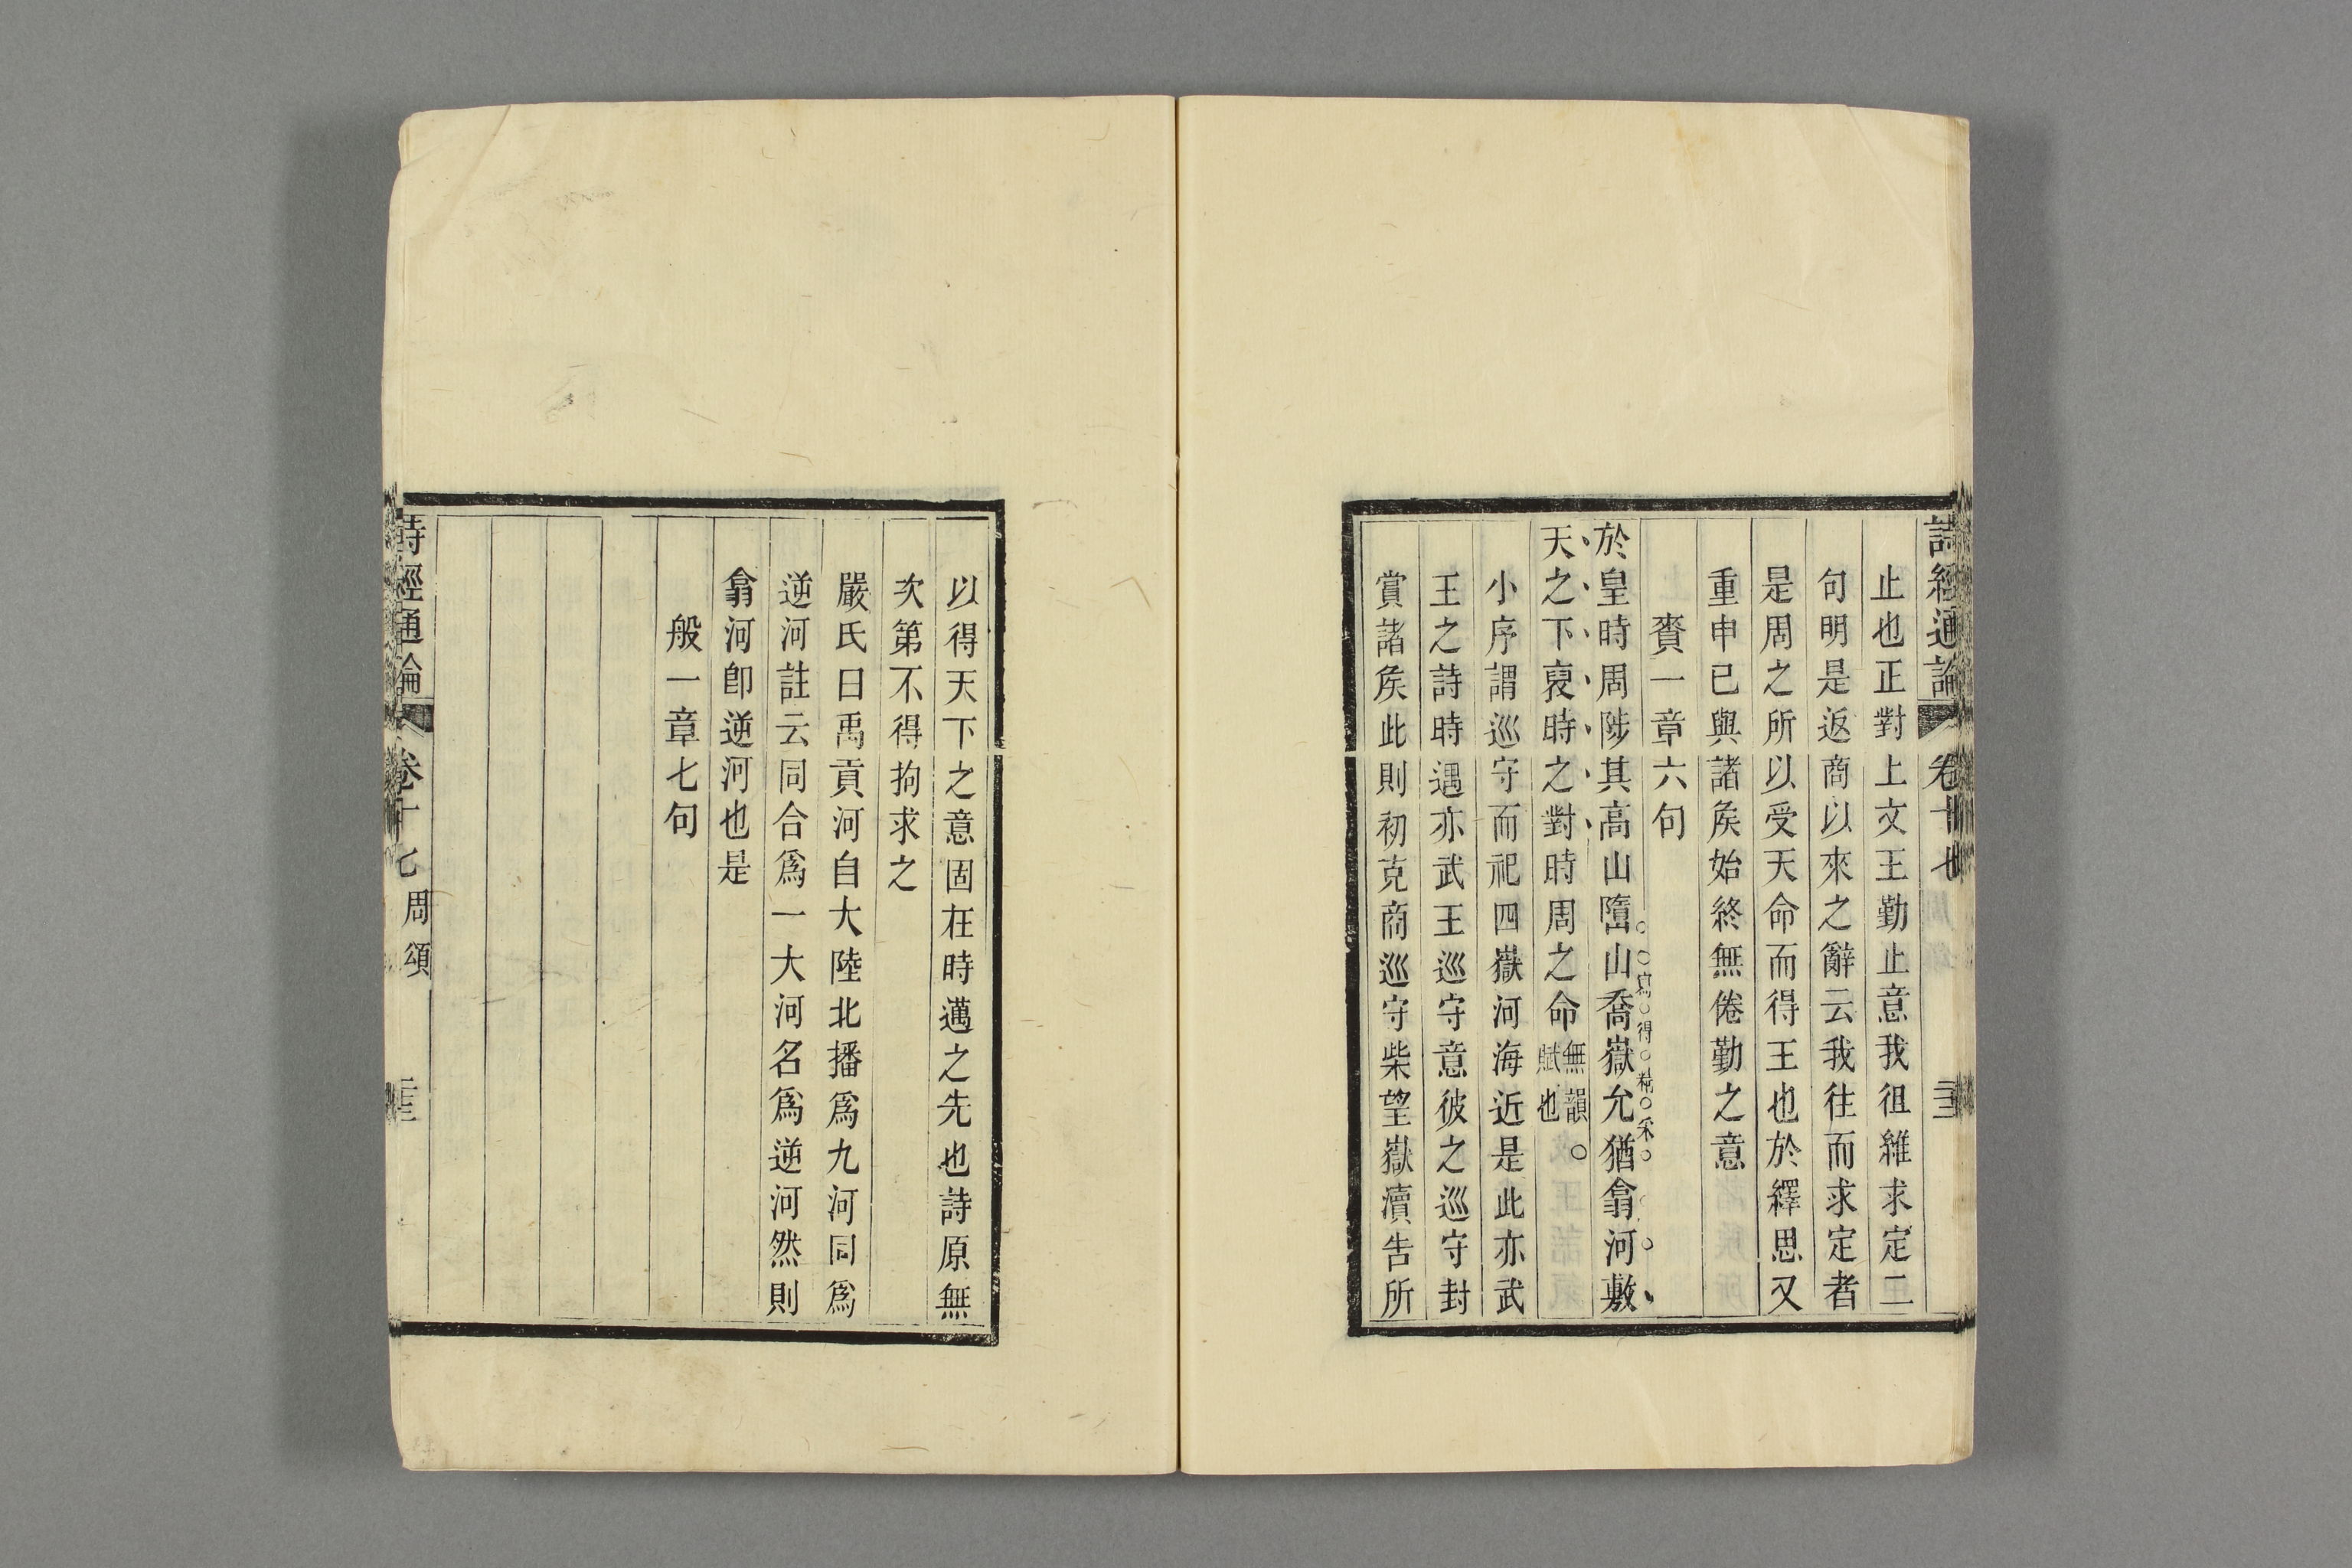 詩經通論 卷十七 三
止也正對上文王勤止意我徂維求定二
句明是返商以來之辭云我往而求定者
是周之所以受天命而得王也於繹思又
重申已與諸矦始終無倦勤之意
賚一章六句
於皇時周陟其高山墮山喬嶽允猶翕河敷
寫得精采
天之下裒時之對時周之命無韻賦也
小序謂巡守而祀四嶽河海近是此亦武
王之詩時邁亦武王巡守意彼之巡守封
賞諸矦此則初克商巡守柴望嶽瀆告所
以得天下之意固在時邁之先也詩原無
次第不得拘求之
嚴氏曰禹貢河自大陸北播爲九河同爲
逆河註云同合爲一大河名爲逆河然則
翕河卽逆河也是
般一章七句
詩經通論 卷十七 周頌